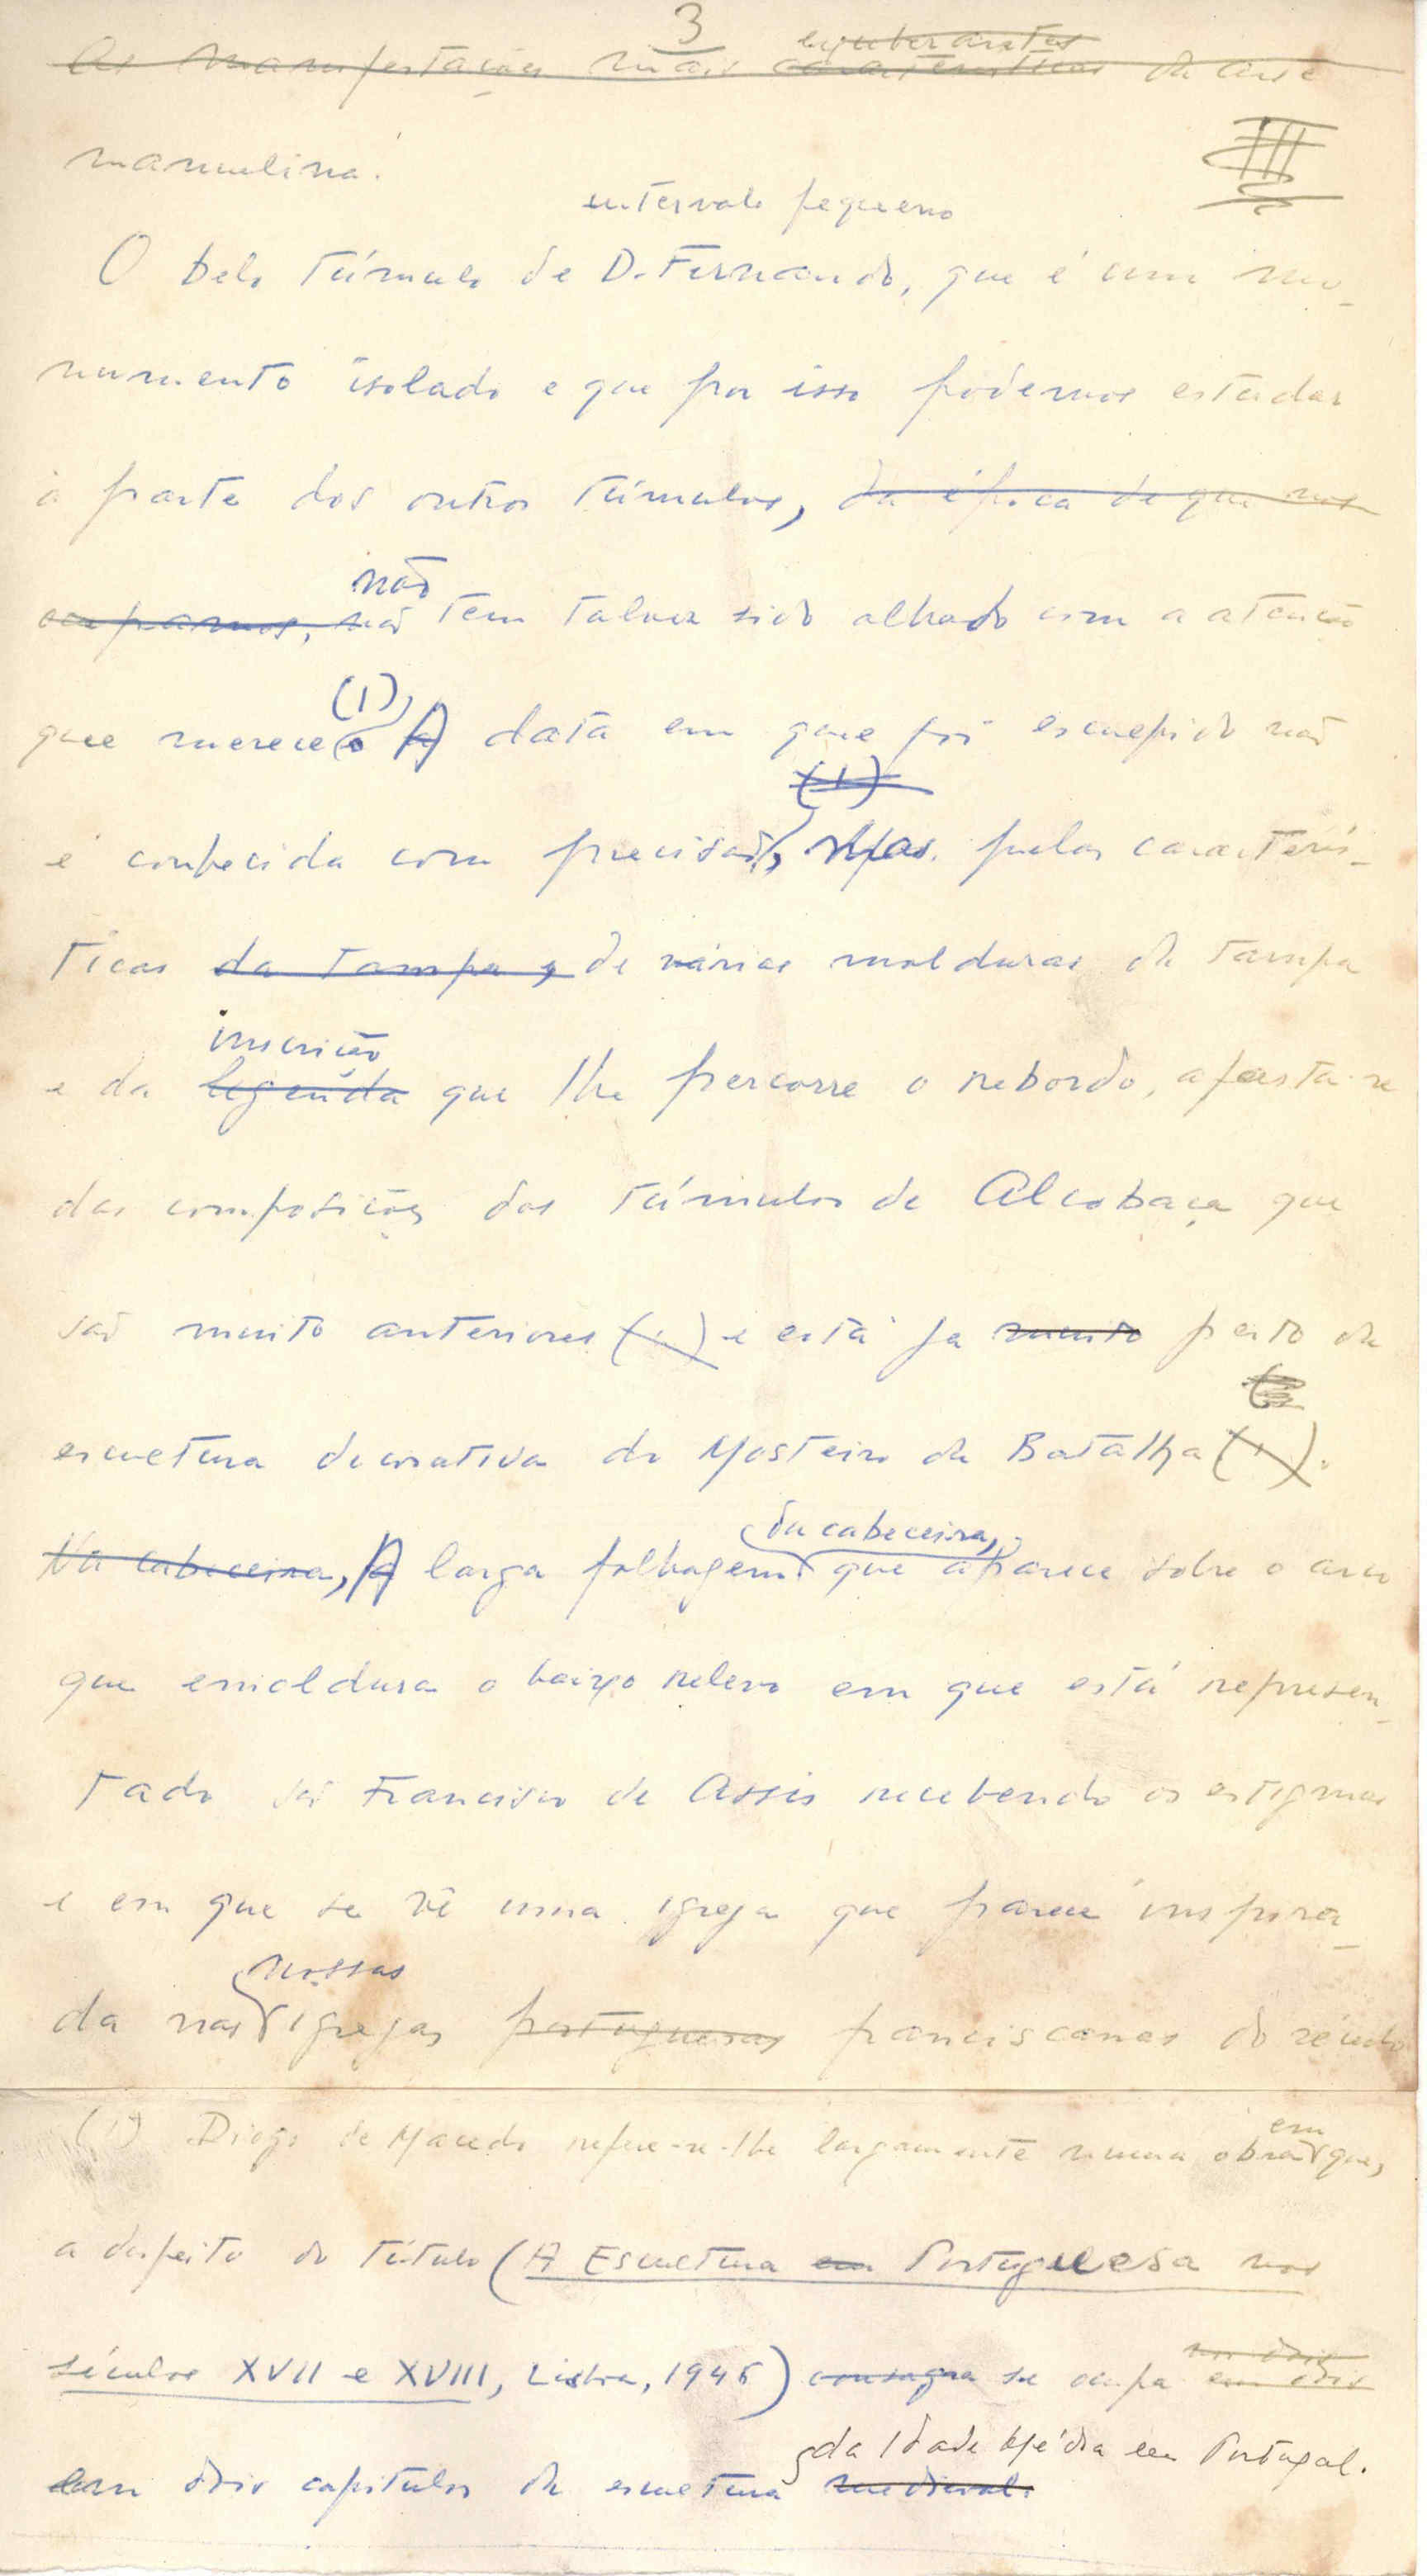 3
exuberantes
As manifestações mais características da arte
manuelina.
III
intervalo pequeno
O belo túmulo de D. Fernando, que é um mo-
numento isolado e que por isso podemos estudar
à parte dos outros túmulos, da época de que nos
não
ocupamos, não tem talvez sido olhado com a atenção
(1),
que merece. A data em que foi esculpido não
(1)
é conhecida com precisão, Mas pelas caracterís-
ticas da tampa, de várias molduras da tampa
inscrição
e da legenda que lhe percorre o rebordo, afasta-se
das composições dos túmulos de Alcobaça que
são muito anteriores (1) e está já muito perto da
escultura decorativa do Mosteiro da Batalha (1).
da cabeceira,
Na cabeceira, A larga folhagem que aparece sobre o arco
que emoldura o baixo relevo em que está represen-
tado São Francisco de Assis recebendo os estigmas
e em que se vê uma igreja que parece inspira-
nossas
da nas igrejas portuguesas franciscanas do século
em
(1) Diogo de Macedo refere-se-lhe largamente numa obra que,
a despeito do título (A Escultura em Portuguesa nos
nos dois
séculos XVII e XVIII, Lisboa, 1945) consagra se ocupa em dois
da Idade Média em Portugal.
em dois capítulos da escultura medieval.